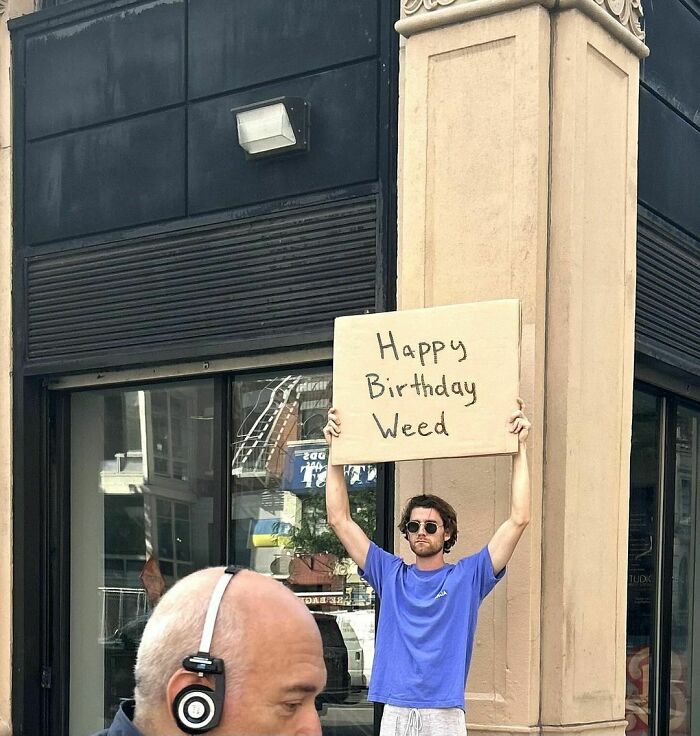 Happy
Birthday
Weed